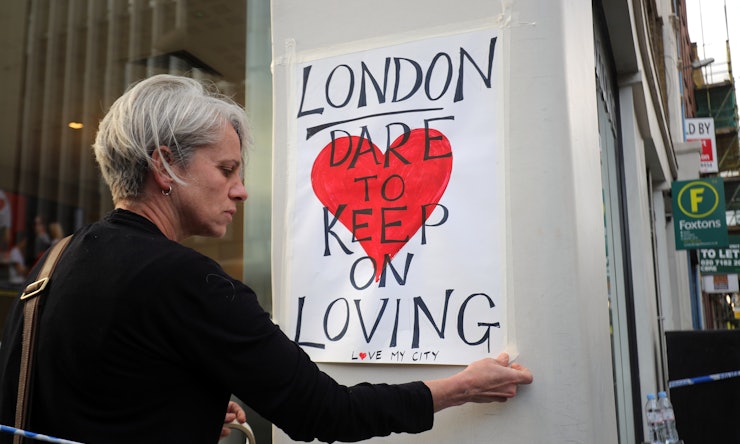 LONDON
DARE
TO
KEEP
ON
LOVING
L♥VE MY CITY
D BY
F
Foxtons
TO LET